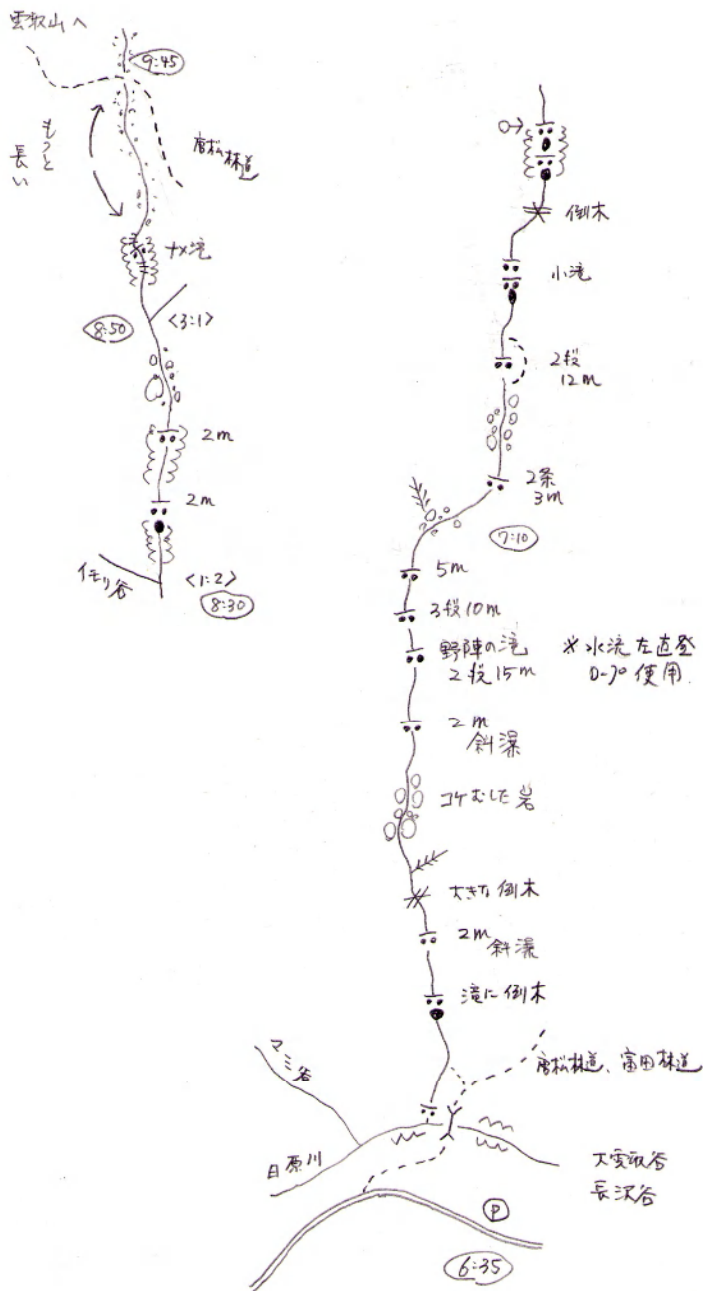 雲取山へ
9:45
もっと
長い
唐松林道
ナメ滝
8:50
<3:1>
2m
2m
イモリ谷
<1:2>
8:30
倒木
小滝
2段
12m
2条
3m
7:10
5m
3段10m
野陣の滝
2段15m
※水流左直登
ロープ使用
2m
斜瀑
コケむした岩
大きな倒木
2m
斜瀑
滝に倒木
唐松林道、富田林道
マミ谷
日原川
大雲取谷
長沢谷
P
6:35